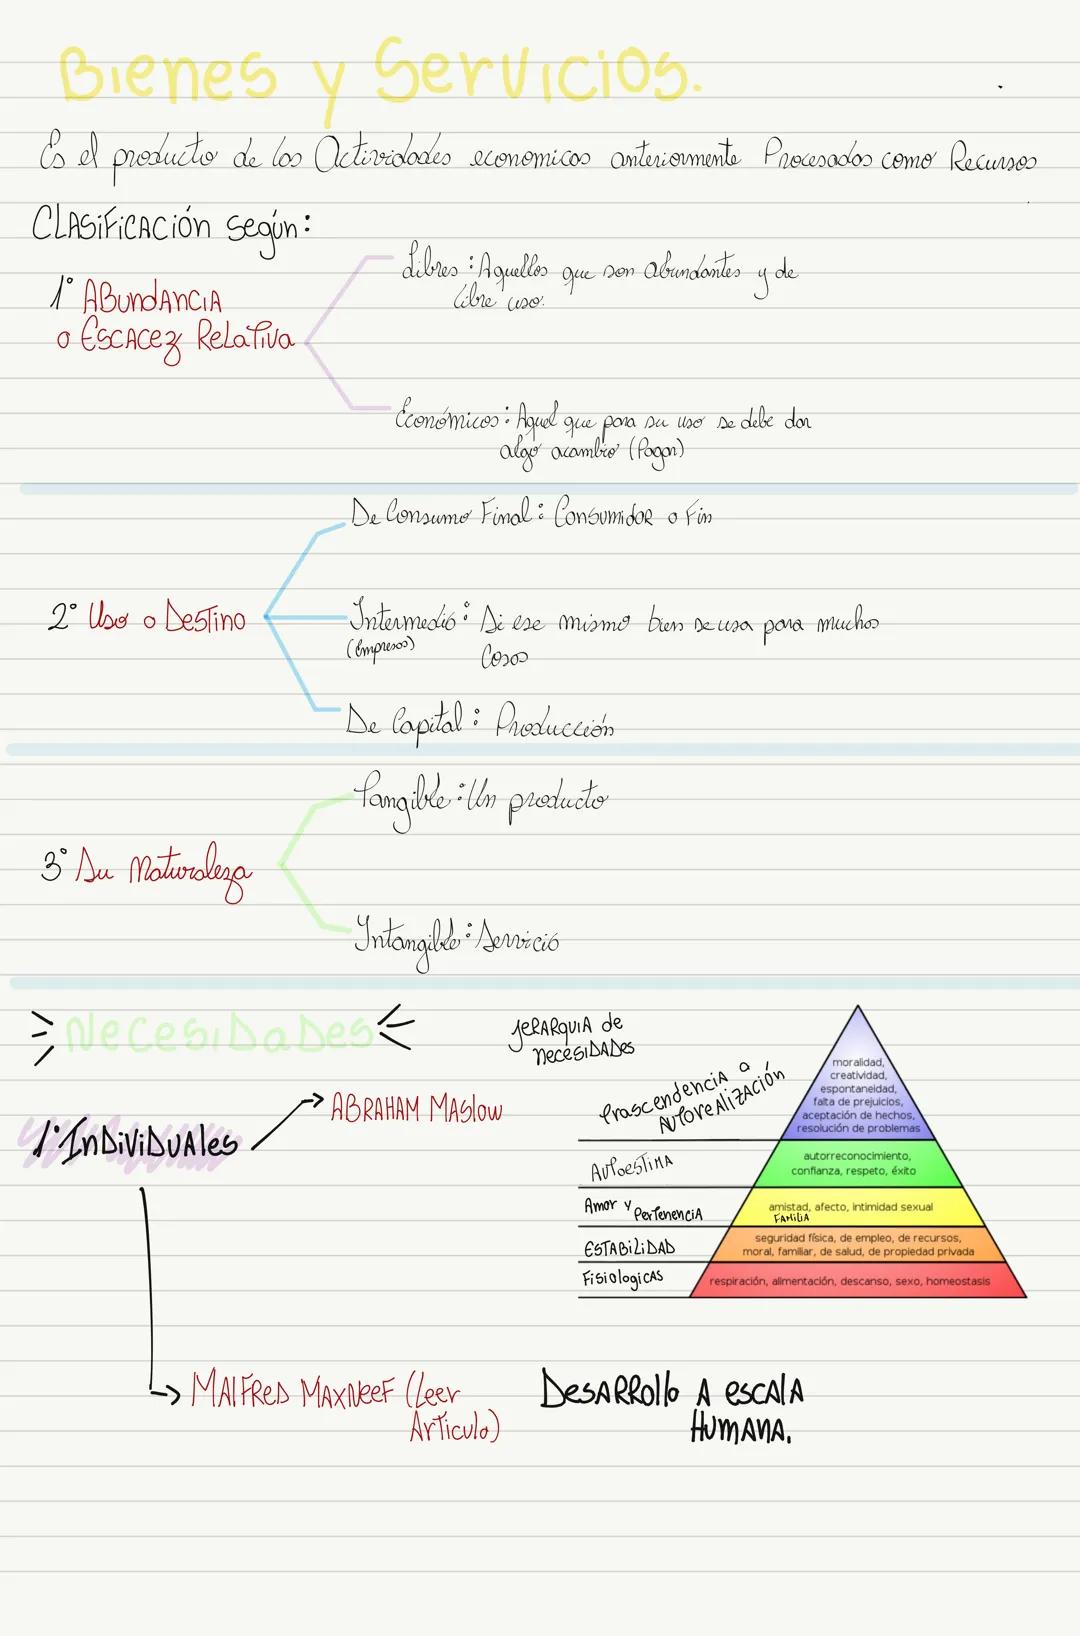 Bienes y Servicios.
Es el producto de las Actividades economicas anteriormente Procesadas como Recursos
CLASiFiCACión según:
1° ABundANCiA
o ESCACez RelaTiva
Libres: Aquellos que son abundantes y de
libre uso.
Económicos: Aquel que para su uso se debe dar
algo acambio (Pagar)
De Consumo Final: Consumidor o Fin
2° Uso o DesTino
Intermedió: Si ese mismo bien se usa para muchas
(empresas)
Cosas
De Capital: Producción
Tangible: Un producto
3° Su Naturaleza
Intangible: Servició
NeCesiDaDes
JeRARQUiA de
neCesiDADes
1° InDiViDUAles
ABRAHAM MASlow
Trascendencia o
AUToreAliZACión
moralidad,
creatividad,
espontaneidad,
falta de prejuicios,
aceptación de hechos,
resolución de problemas
AUToesTiMA
autorreconocimiento,
confianza, respeto, éxito
Amor y PerTenenCiA
amistad, afecto, intimidad sexual
FAMiliA
ESTABiLiDAD
seguridad física, de empleo, de recursos,
moral, familiar, de salud, de propiedad privada
FisiologicAS
respiración, alimentación, descanso, sexo, homeostasis
MAlFReD MAXNeeF (Leer
ArTiculo)
DesARRollo A esCAlA
HUMANA.